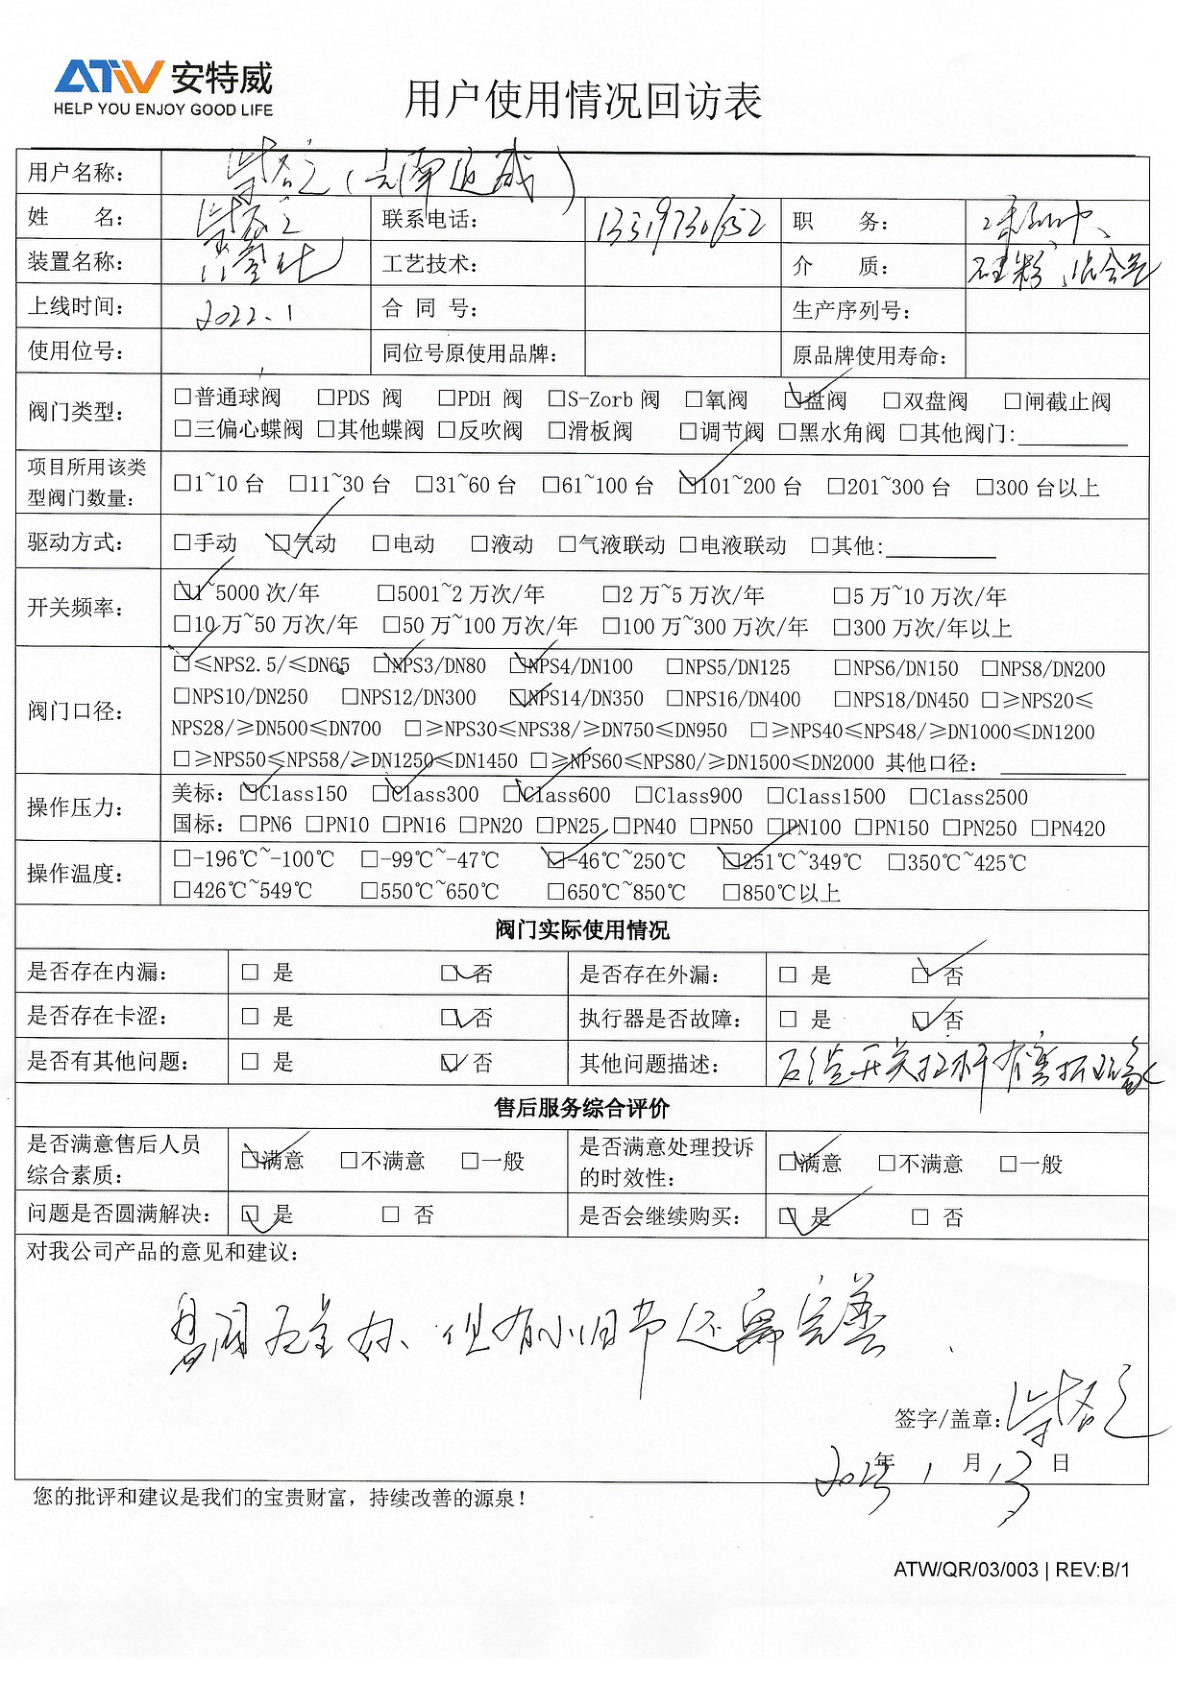 ATW 安特威
HELP YOU ENJOY GOOD LIFE
用户使用情况回访表
用户名称： （云南通威）
姓 名： 联系电话： 职 务：
装置名称： 工艺技术： 介 质： 硅粉、
上线时间： 2022.1 合 同 号： 生产序列号：
使用位号： 同位号原使用品牌： 原品牌使用寿命：
阀门类型： □普通球阀 □PDS 阀 □PDH 阀 □S-Zorb 阀 □氧阀 ☑盘阀 □双盘阀 □闸截止阀
□三偏心蝶阀 □其他蝶阀 □反吹阀 □滑板阀 □调节阀 □黑水角阀 □其他阀门:
项目所用该类型阀门数量： □1~10 台 □11~30 台 □31~60 台 □61~100 台 ☑101~200 台 □201~300 台 □300 台以上
驱动方式： □手动 ☑气动 □电动 □液动 □气液联动 □电液联动 □其他:
开关频率： ☑1~5000 次/年 □5001~2 万次/年 □2 万~5 万次/年 □5 万~10 万次/年
□10 万~50 万次/年 □50 万~100 万次/年 □100 万~300 万次/年 □300 万次/年以上
阀门口径： ☑≤NPS2.5/≤DN65 ☑NPS3/DN80 ☑NPS4/DN100 □NPS5/DN125 □NPS6/DN150 □NPS8/DN200
□NPS10/DN250 □NPS12/DN300 ☑NPS14/DN350 □NPS16/DN400 □NPS18/DN450 □≥NPS20≤
NPS28/≥DN500≤DN700 □≥NPS30≤NPS38/≥DN750≤DN950 □≥NPS40≤NPS48/≥DN1000≤DN1200
□≥NPS50≤NPS58/≥DN1250≤DN1450 □≥NPS60≤NPS80/≥DN1500≤DN2000 其他口径：
操作压力： 美标：☑Class150 ☑Class300 ☑Class600 □Class900 □Class1500 □Class2500
国标：□PN6 □PN10 □PN16 □PN20 □PN25 □PN40 □PN50 □PN100 □PN150 □PN250 □PN420
操作温度： □-196℃~-100℃ □-99℃~-47℃ ☑-46℃~250℃ ☑251℃~349℃ □350℃~425℃
□426℃~549℃ □550℃~650℃ □650℃~850℃ □850℃以上
阀门实际使用情况
是否存在内漏： □ 是 ☑ 否 是否存在外漏： □ 是 ☑ 否
是否存在卡涩： □ 是 ☑ 否 执行器是否故障： □ 是 ☑ 否
是否有其他问题： □ 是 ☑ 否 其他问题描述： 开关拉杆有
售后服务综合评价
是否满意售后人员综合素质： ☑满意 □不满意 □一般 是否满意处理投诉的时效性： ☑满意 □不满意 □一般
问题是否圆满解决： ☑ 是 □ 否 是否会继续购买： ☑ 是 □ 否
对我公司产品的意见和建议：
盘阀质量好、但有小细节还需完善.
签字/盖章：
2023年 1 月 13 日
您的批评和建议是我们的宝贵财富，持续改善的源泉！
ATW/QR/03/003 | REV:B/1